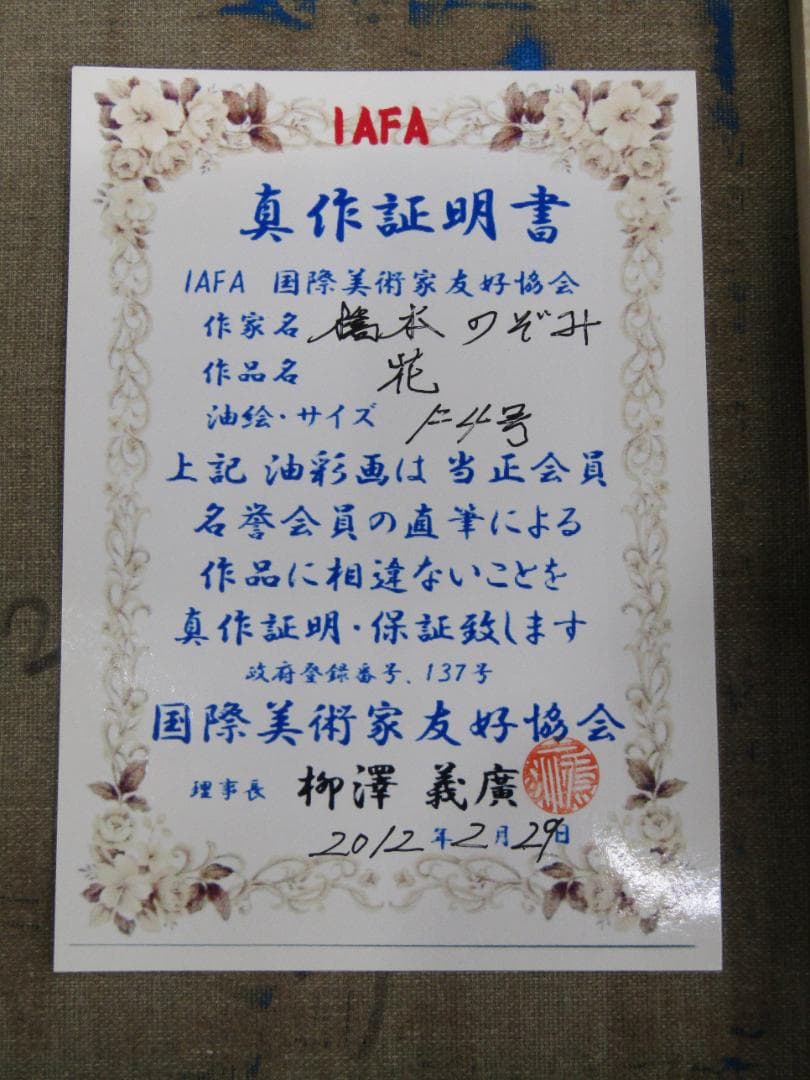 IAFA
真作証明書
IAFA 国際美術家友好協会
作家名 橋本 のぞみ
作品名 花
油絵・サイズ F4号
上記 油彩画は 当正会員
名誉会員の直筆による
作品に相違ないことを
真作証明・保証致します
政府登録番号、137号
国際美術家友好協会
理事長 柳澤 義廣
2012年2月29日